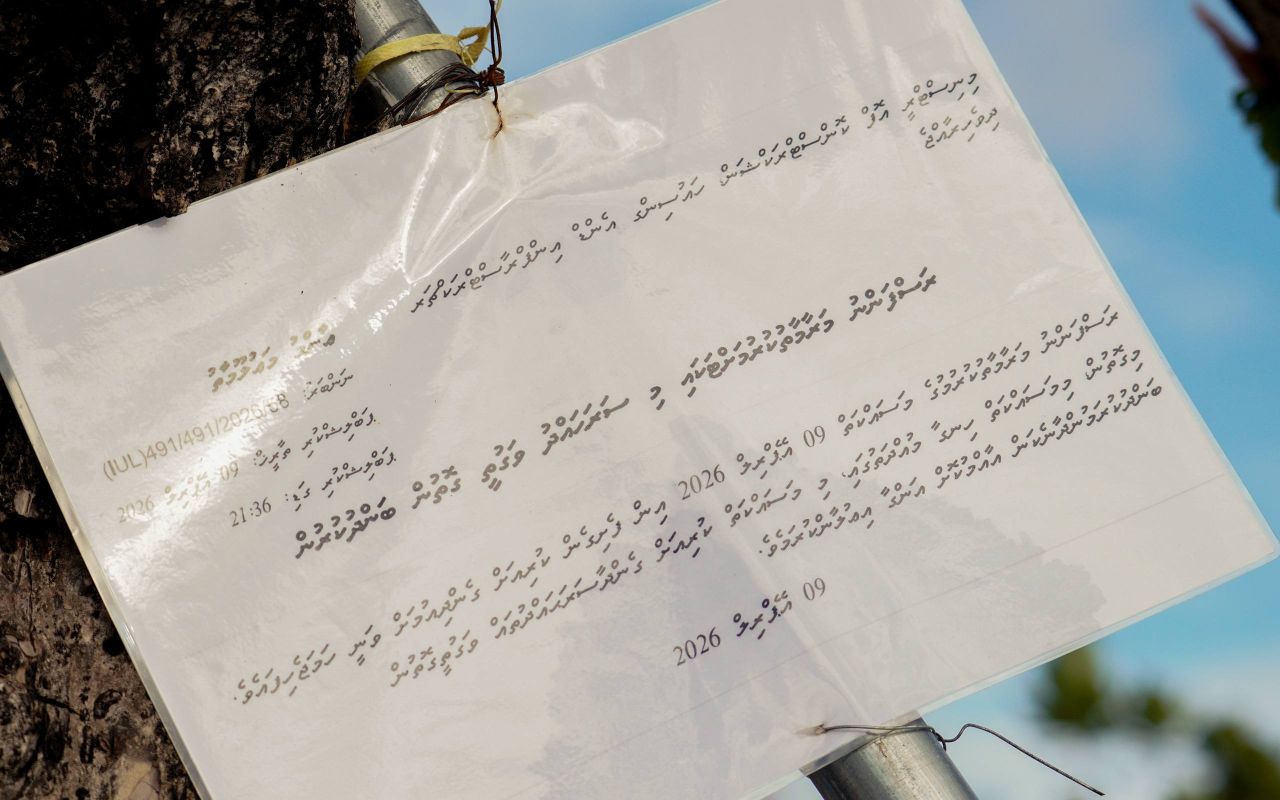 މިނިސްޓްރީ އޮފް ކޮންސްޓްރަކްޝަން ހައުސިންގ އެންޑް އިންފްރާސްޓްރަކްޗަރ
ދިވެހިރާއްޖެ
ޢާންމު މަޢުލޫމާތު
ނަންބަރު: (IUL)491/491/2026/68
ޕަބްލިޝްކުރި ތާރީޚް: 09 އޭޕްރިލް 2026
ޕަބްލިޝްކުރި ގަޑި: 21:36
ރަސްފަންނު މަރާމާތުކުރުމަށްޓަކައި މި ސަރަހައްދު ވަގުތީ ގޮތުން ބަންދުކުރުން
ރަސްފަންނު މަރާމާތުކުރުމުގެ މަސައްކަތް 09 އޭޕްރިލް 2026 އިން ފެށިގެން ކުރިއަށް ގެންދިއުމަށް ވަނީ ހަމަޖެހިފައެވެ.
މިގޮތުން މިމަސައްކަތް ހިނގާ މުއްދަތުގައި، މި މަސައްކަތް ކުރިއަށް ގެންދާސަރަޙައްދުތައް ވަގުތީގޮތުން
ބަންދުކުރަމުންދާނެކަން އާއްމުކޮށް އަންގާ އިޢުލާންކުރަމެވެ.
09 އޭޕްރިލް 2026